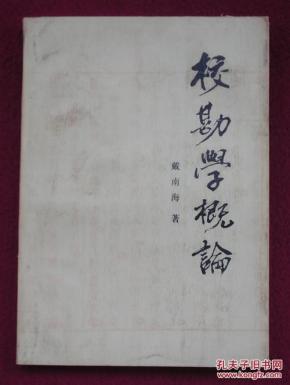 校勘學概論
戴南海 著
孔夫子旧书网